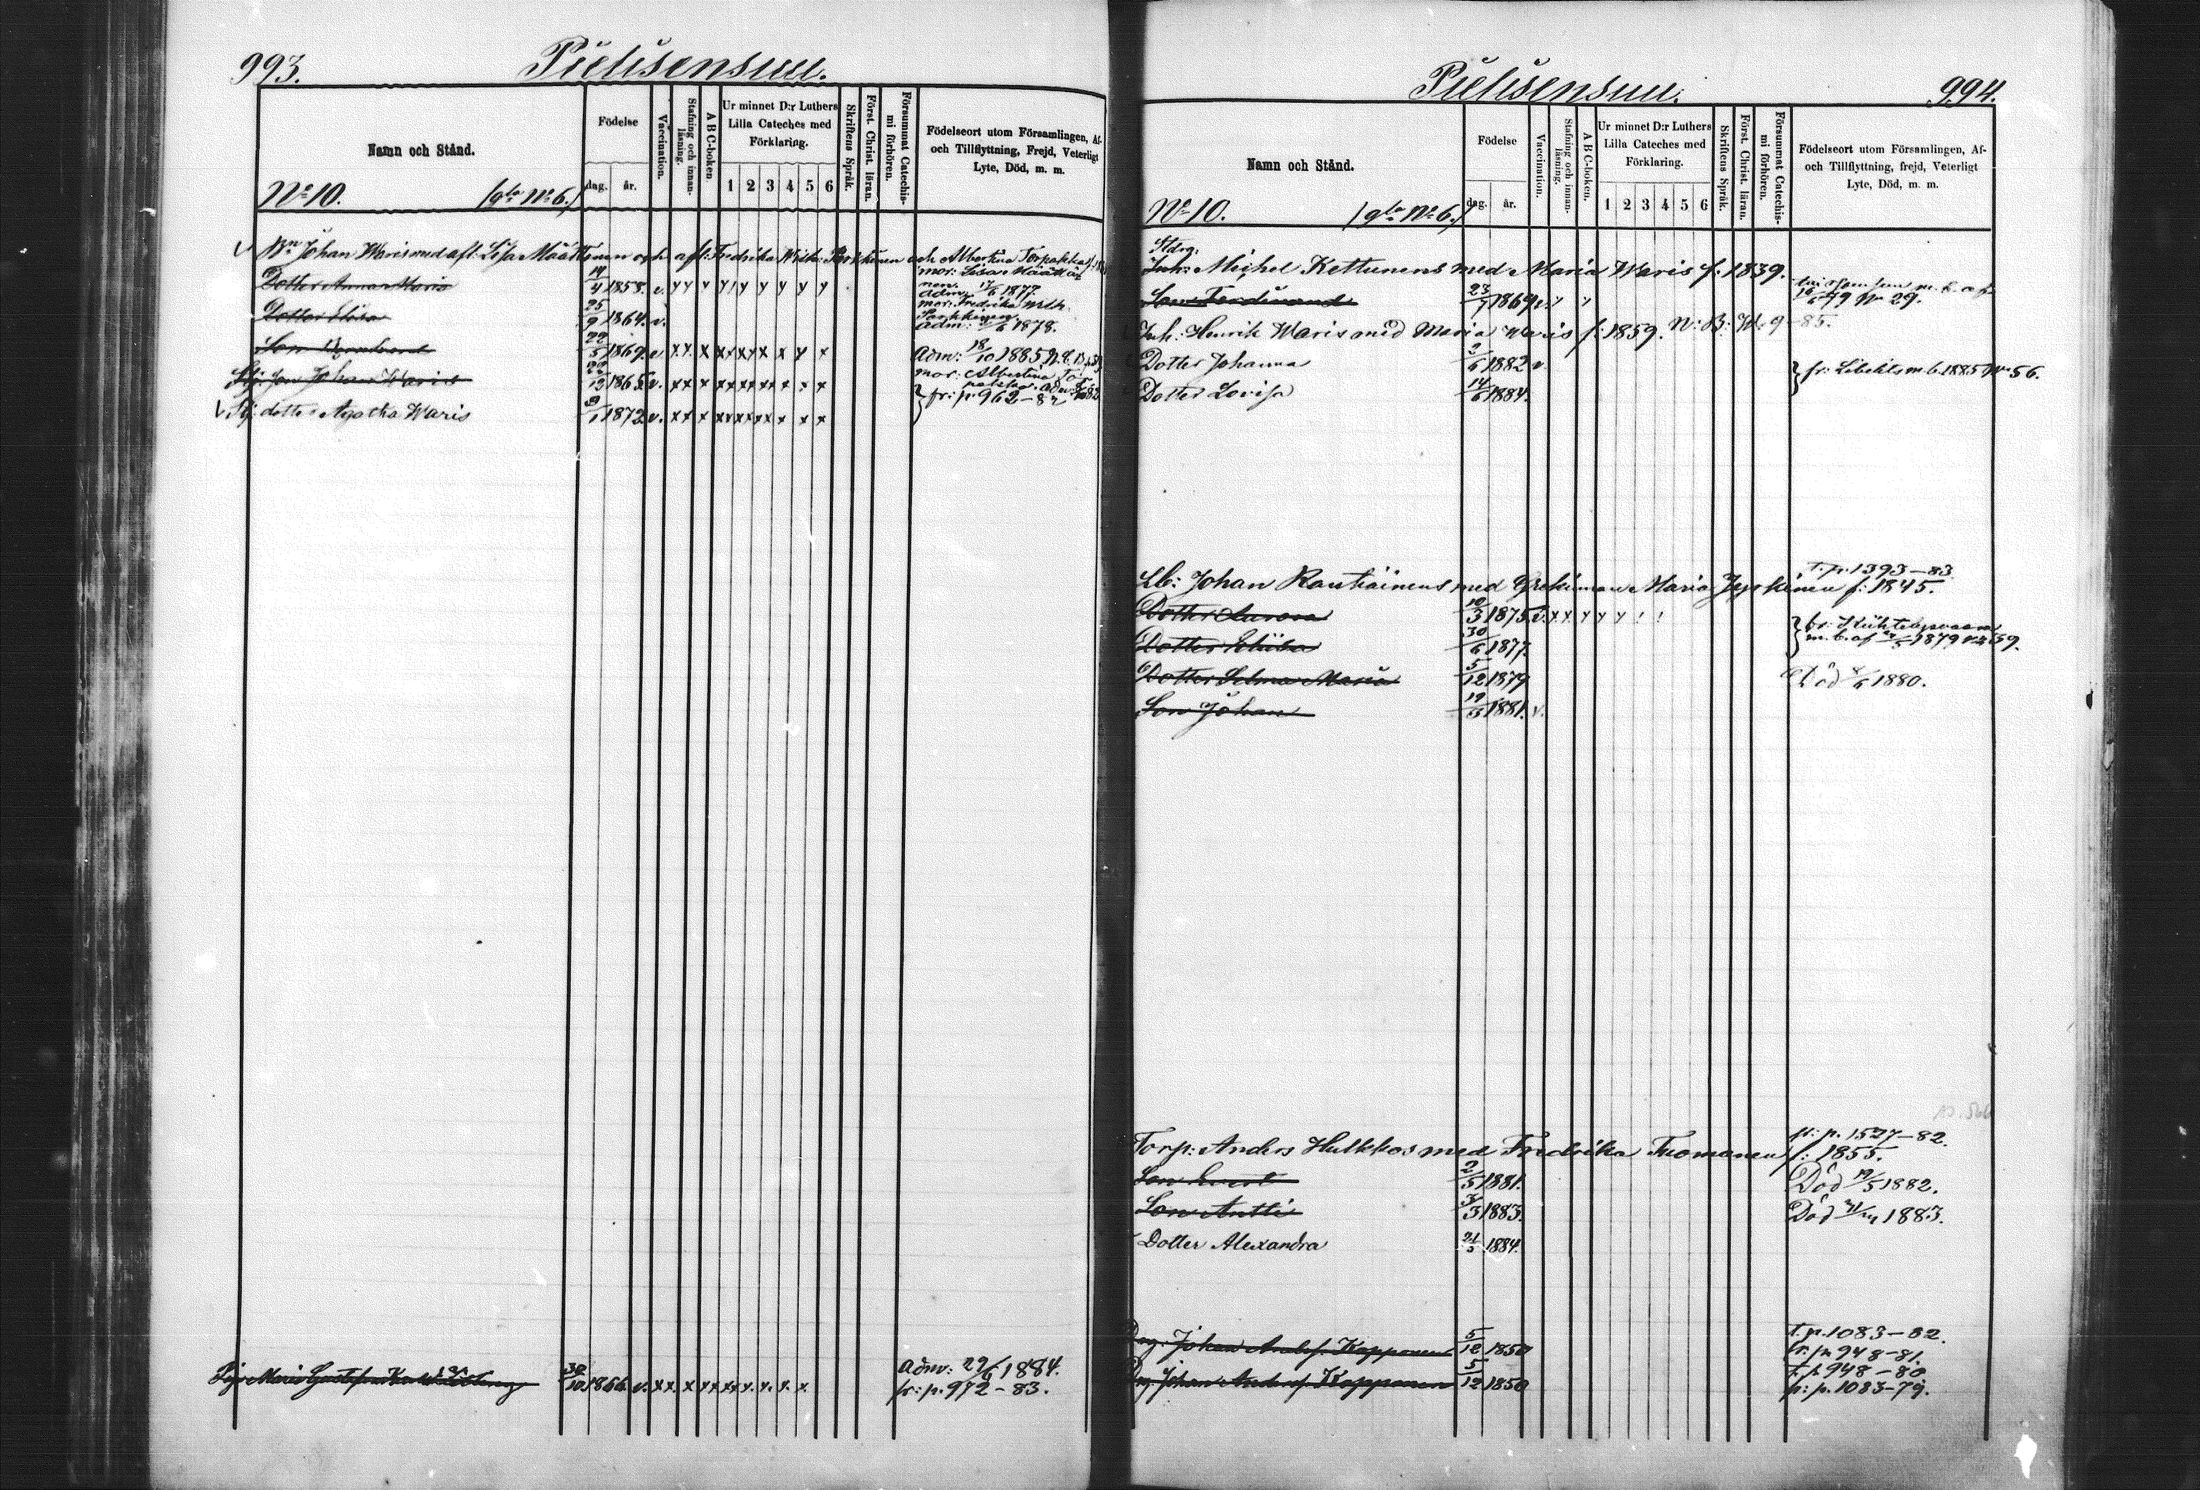 993.
Pielisensuu.
Namn och Stånd.
Födelse
dag. år.
Vaccination.
Stafning och innan-läsning.
A B C-boken
Ur minnet D:r Luthers
Lilla Cateches med
Förklaring.
1 2 3 4 5 6
Skriftens Språk.
Först. Christ. läran.
Försummat Catechis-
mi förhören.
Födelseort utom Församlingen, Af-
och Tillflyttning, Frejd, Veterligt
Lyte, Död, m. m.
No 10. (gla No 6.)
Bn Johan Waris med afl: Lisa Määttänen och afl: Fredrika Parkkinen och Albertina Torpakka
mor: Lisa Määttä
nen
Dotter Anna Maria 14/4 1858. v. adm: 17/6 1877
mor: Fredrika
Parkkinen
Dotter Elisa 25/9 1864. v. adm: 1878.
Son Bernhard 22/5 1869. v x x x x x x x x x Adm: 18/10 1885
mor: Albertina Tor
pakka.
Sty: son Johan Waris 1865. v. x x x x x x x x x
Sty: dotter Agatha Waris 8/1 1872. v. x x x x x x x x x fr: p. 962-82
Maria Gustafva 30/10 1866. v. x x x x x x x x Adm: 29/6 1884.
fr: p. 972-83.
Pielisensuu.
994.
Namn och Stånd.
Födelse
dag. år.
Vaccination.
Stafning och innan-läsning.
A B C-boken.
Ur minnet D:r Luthers
Lilla Cateches med
Förklaring.
1 2 3 4 5 6
Skriftens Språk.
Först. Christ. läran.
Försummat Catechis-
mi förhören.
Födelseort utom Församlingen, Af-
och Tillflyttning, frejd, Veterligt
Lyte, Död, m. m.
No 10. (gla No 6.)
Inh: Michel Kettunens med Maria Waris f: 1839.
Son Ferdinand 23/7 1869 v. m. b. af
16/6 79 No 29.
Inh: Henrik Waris med Maria Waris f: 1859. N: B: W. 9-85.
Dotter Johanna 2/6 1882 v
Dotter Lovisa 14/6 1884. fr: Libelits m. b. 1885 No 56.
t. p. 1393-83
Lb: Johan Rautiainens med Maria Jeskinen f: 1845.
Dotter Aurora 10/3 1875. v. x x x x x fr:
Dotter 30/6 1877. m. b. af 1879 No 59.
Dotter Selma Maria 5/12 1879 Död 4/6 1880.
Son Johan 19/5 1881. v.
fr: p. 1527-82.
Torp: Anders Hulkkos med Fredrika Tuomanen f: 1855.
Son 2/5 1881. Död 19/5 1882.
Son Antti 3/3 1883. Död 1883.
Dotter Alexandra 21/5 1884.
Johan Andersf. Kapponen 5/12 1850 t. p. 1083-82.
fr: p. 948-81.
Johan Andersf. Kapponen 5/12 1850 t. p. 948-80.
fr: p. 1083-79.